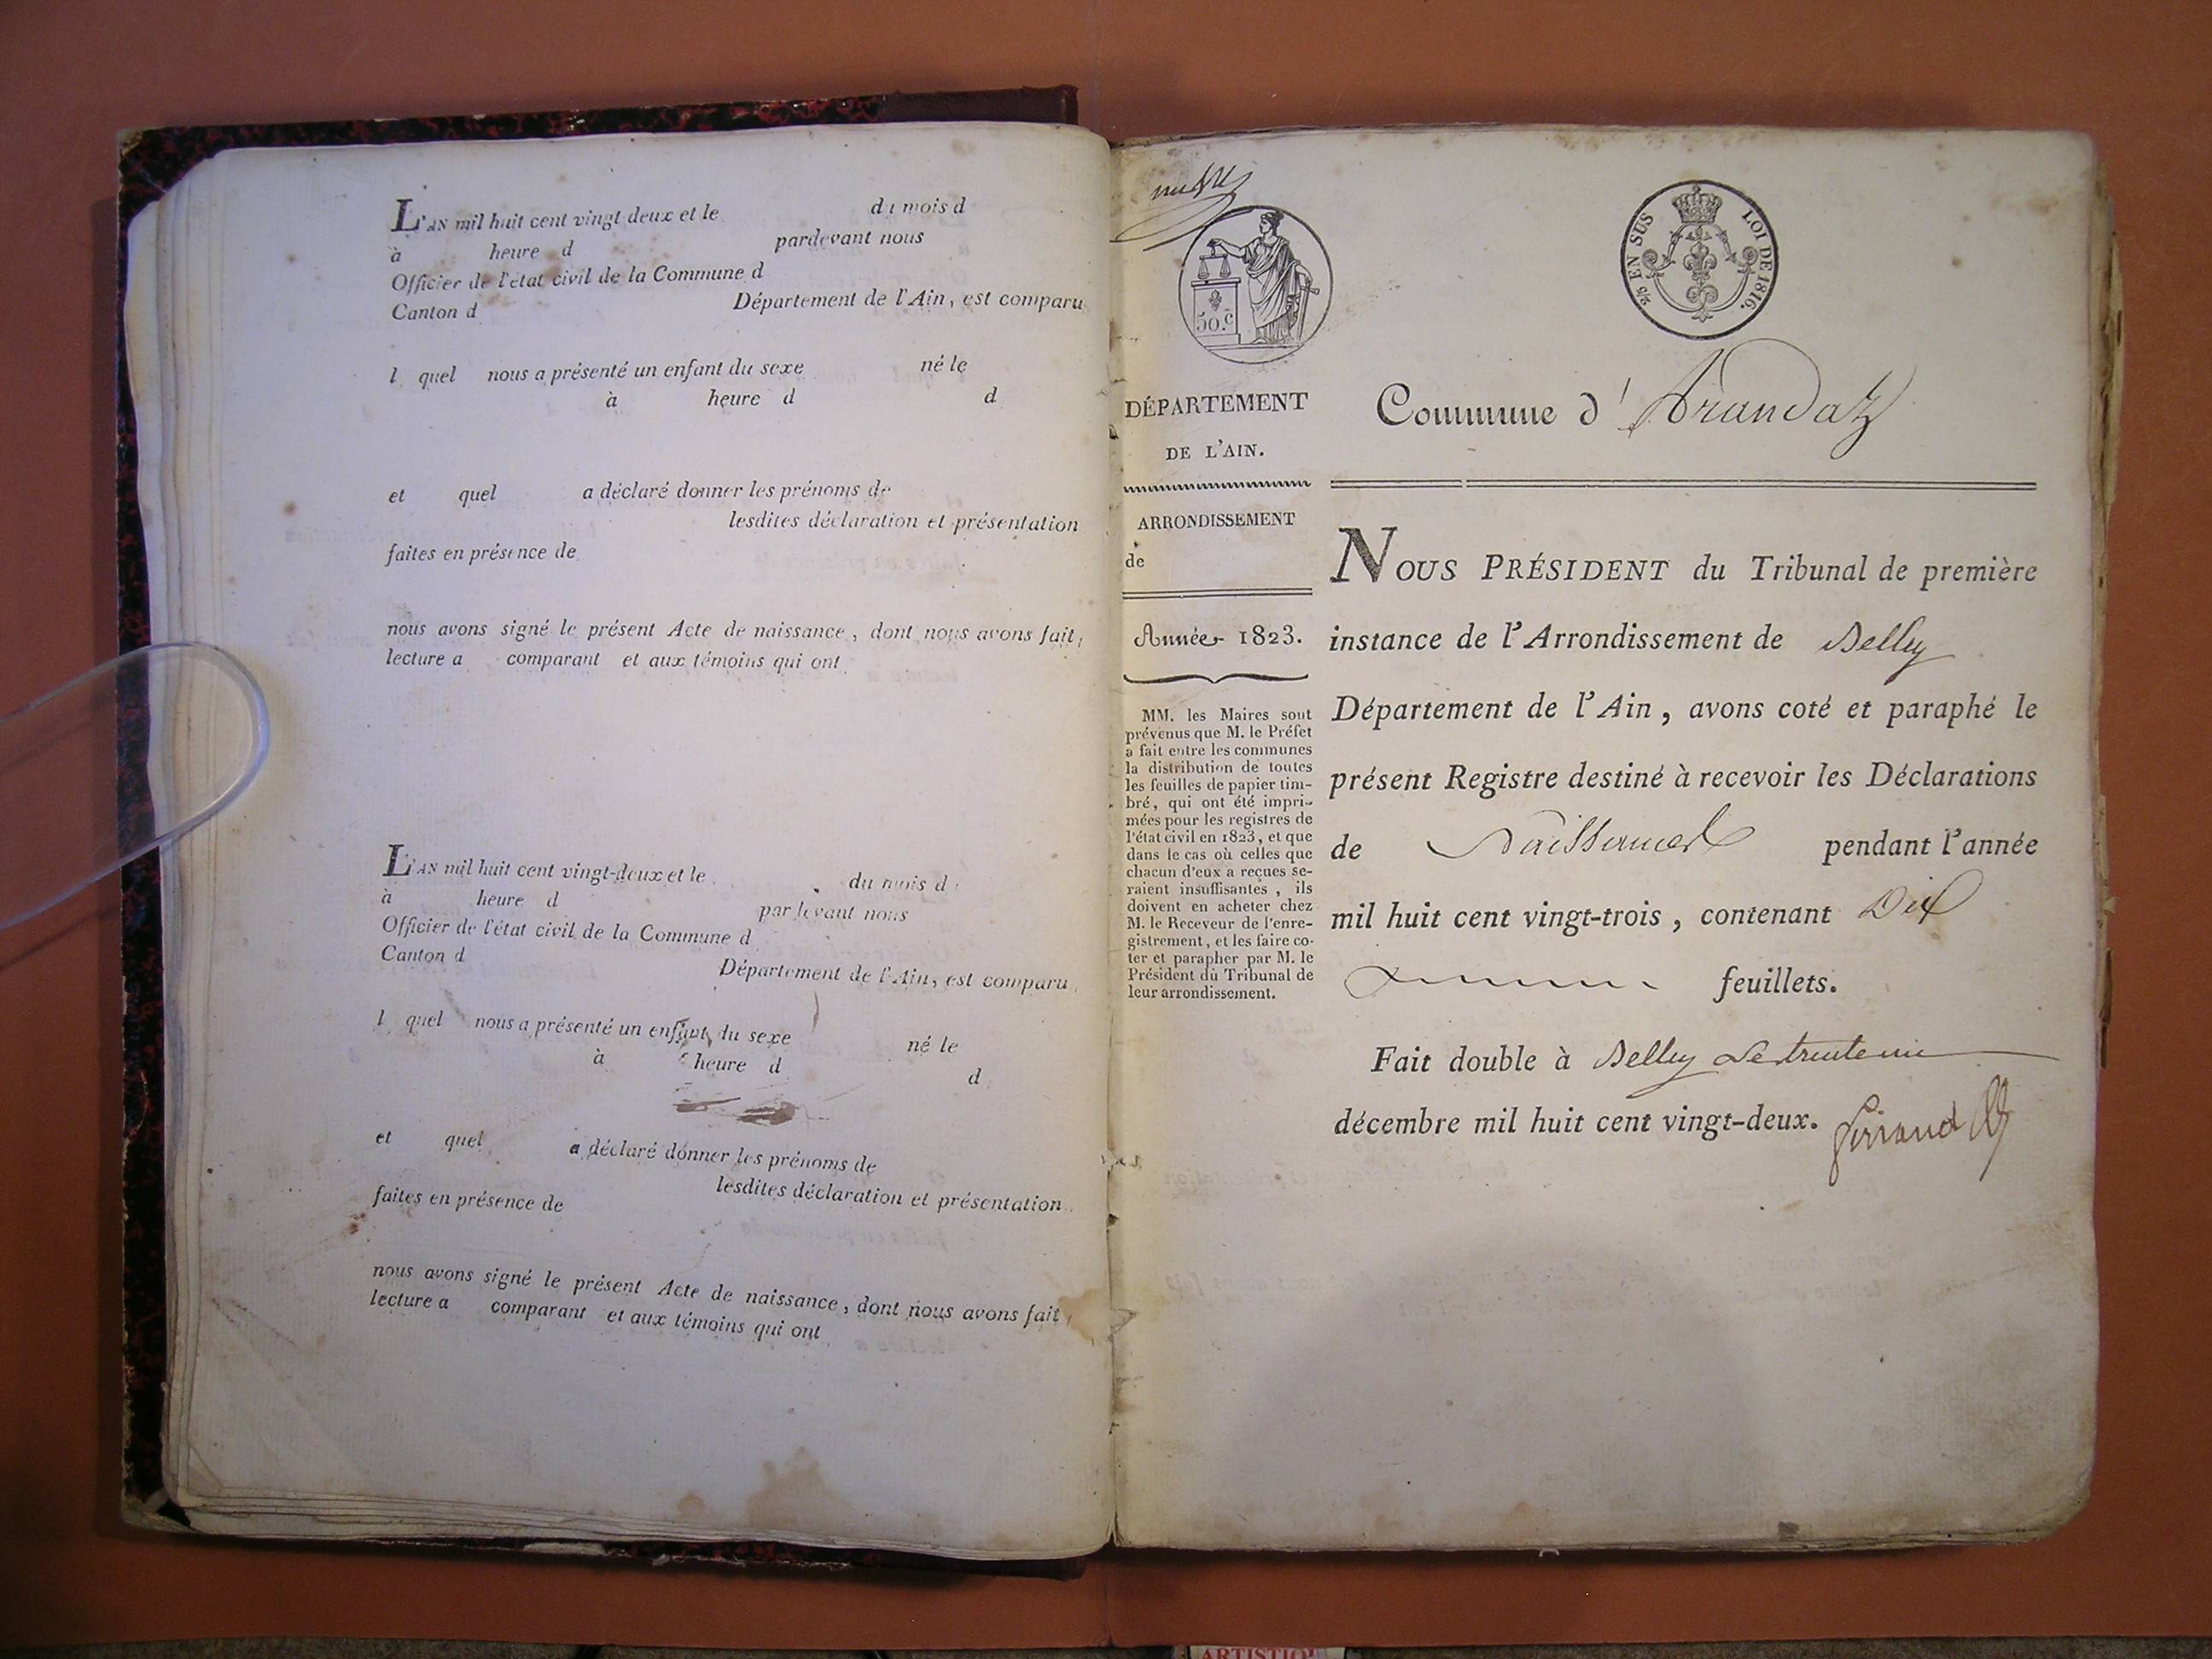 L'AN mil huit cent vingt deux et le du mois d
à heure d pardevant nous
Officier de l'état civil de la Commune d
Canton d Département de l'Ain, est comparu
l quel nous a présenté un enfant du sexe né le
à heure d d
et quel a déclaré donner les prénoms de
lesdites déclaration et présentation
faites en présence de
nous avons signé le présent Acte de naissance, dont nous avons fait
lecture a comparant et aux témoins qui ont
L'AN mil huit cent vingt-deux et le du mois d
à heure d pardevant nous
Officier de l'état civil de la Commune d
Canton d Département de l'Ain, est comparu
l quel nous a présenté un enfant du sexe né le
à heure d d
et quel a déclaré donner les prénoms de
lesdites déclaration et présentation
faites en présence de
nous avons signé le présent Acte de naissance, dont nous avons fait
lecture a comparant et aux témoins qui ont
50.c
2/5 EN SUS LOI DE 1816.
DÉPARTEMENT
DE L'AIN.
ARRONDISSEMENT
de
Année 1823.
MM. les Maires sont
prévenus que M. le Préfet
a fait entre les communes
la distribution de toutes
les feuilles de papier tim-
bré, qui ont été impri-
mées pour les registres de
l'état civil en 1823, et que
dans le cas où celles que
chacun d'eux a reçues se-
raient insuffisantes, ils
doivent en acheter chez
M. le Receveur de l'enre-
gistrement, et les faire co-
ter et parapher par M. le
Président du Tribunal de
leur arrondissement.
Commune d'Arandaz
NOUS PRÉSIDENT du Tribunal de première
instance de l'Arrondissement de Belley
Département de l'Ain, avons coté et paraphé le
présent Registre destiné à recevoir les Déclarations
de Naissances pendant l'année
mil huit cent vingt-trois, contenant Dix
feuillets.
Fait double à Belley Le trente un
décembre mil huit cent vingt-deux.
ARTISTIQ